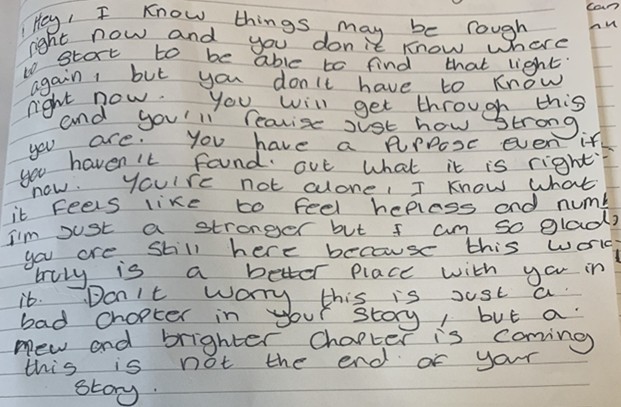 Hey, I know things may be rough
right now and you don't know where
to start to be able to find that light
again, but you don't have to know
right now. You will get through this
and you'll realise just how strong
you are. You have a purpose even if
you haven't found out what it is right
now. You're not alone, I know what
it feels like to feel hepless and numb
I'm just a stranger but I am so glad
you are still here because this world
truly is a better place with you in
it. Don't worry this is just a
bad chapter in your story, but a
new and brighter chapter is coming
this is not the end of your
story.
can